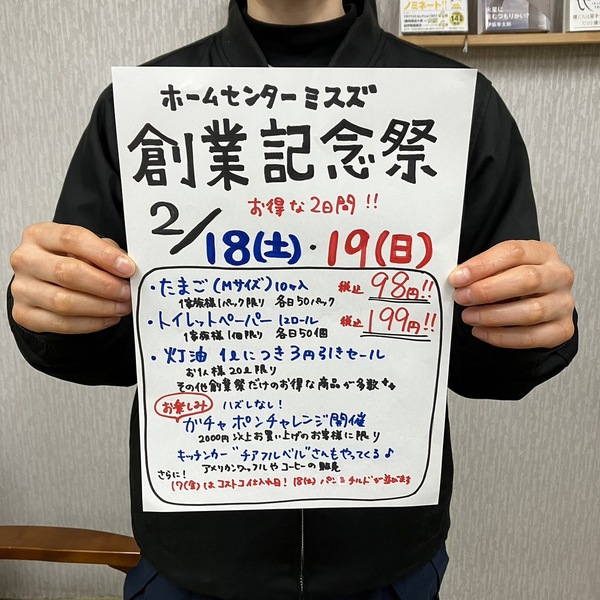 ノミネート!!
火星に
住むつもりかい?
ホームセンターミスズ
創業記念祭
お得な2日間!!
2/18(土)・19(日)
・たまご(Mサイズ)10ヶ入 税込 98円!!
1家族様1パック限り 各日50パック
・トイレットペーパー 12ロール 税込 199円!!
1家族様1個限り 各日50個
・灯油 1ℓにつき3円引きセール
お1人様20ℓ限り
その他創業祭だけのお得な商品が多数
お楽しみ ハズレなし!
ガチャポンチャレンジ開催
2000円以上お買い上げのお客様に限り
キッチンカー"チアフルベル"さんもやってくる♪
アメリカンワッフルやコーヒーの販売
さらに!
17(金)はコストコ仕入れ日! 18(土) パン&チルドが並びます